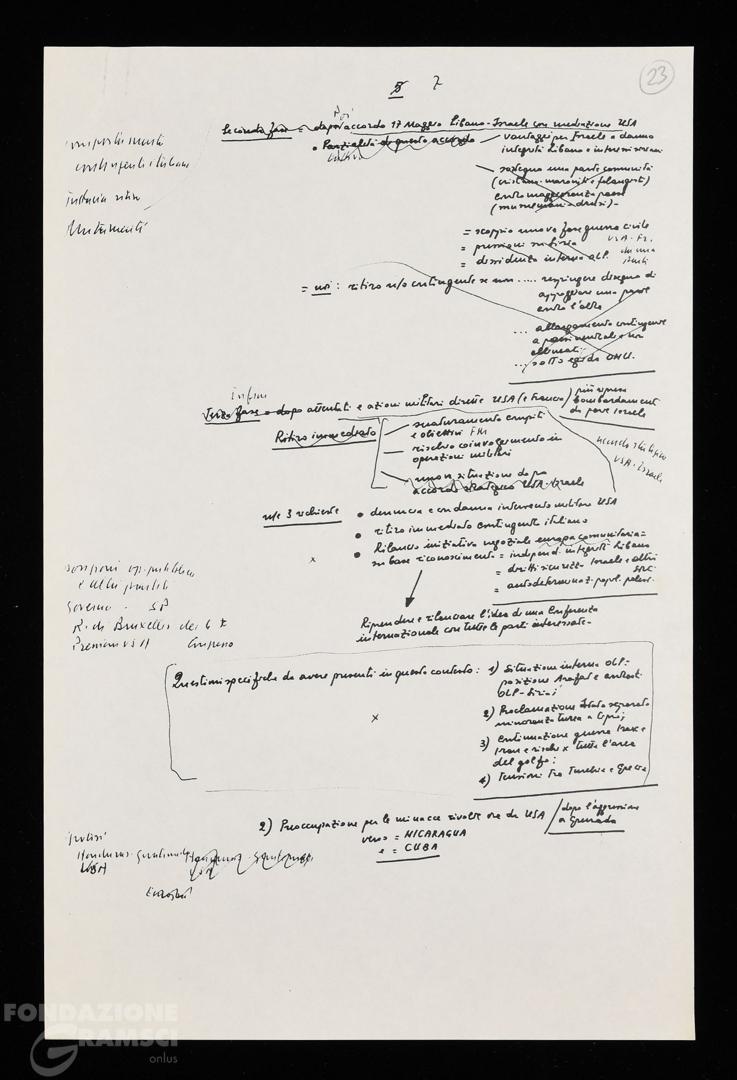 5 7
23
Seconda fase = dopo accordo 17 Maggio Libano-Israele con mediazione USA
• Parzialità di questo accordo — vantaggi per Israele a danno
integrità Libano e interessi siriani
— sostegno una parte comunità
(cristiano-maroniti e falangisti)
contro maggioranza paese
(musulmani e drusi) -
= scoppio nuova fase guerra civile
= pressioni su Siria
= dissidenza interna OLP.
USA-Fr.
= noi: ritiro ns/o contingente se non ..... respingere disegno di
appoggiare una parte
contro l'altra
... allargamento contingente
a paesi neutrali e non
allineati
... sotto egida ONU.
infine
Terza fase = dopo attentati e azioni militari dirette USA (e Francia)
più ripresa
bombardamenti
da parte Israele
Ritiro immediato
— snaturamento compiti
e obiettivi FM
— rischio coinvolgimento in
operazioni militari
— nuova situazione dopo
accordo strategico USA-Israele
accordo strategico
USA-Israele
ns/e 3 richieste
• denuncia e condanna intervento militare USA
• ritiro immediato contingente italiano
• Rilancio iniziativa negoziale europa comunitaria =
su base riconoscimento = independ. integrità Libano
= diritti sicurezza Israele e altri
stati
= autodeterminaz. popol. palest.
x
Riprendere e rilanciare l'idea di una Conferenza
internazionale con tutte le parti interessate -
e altri partiti
Governo
R. di Bruxelles del 6 X
Questioni specifiche da avere presenti in questo contesto: 1) Situazione interna OLP-
posizione Arafat e contrasti
OLP-Siria;
2) Proclamazione Stato separato
minoranza turca a Cipro;
x
3) Continuazione guerra Irak e
Iran e rischi x tutta l'area
del golfo;
4) Tensioni tra Turchia e Grecia
2) Preoccupazione per le minacce rivolte ora da USA / dopo l'aggressione
a Grenada
verso = NICARAGUA
e = CUBA
Honduras-Guatemala
USA
FONDAZIONE
GRAMSCI
onlus